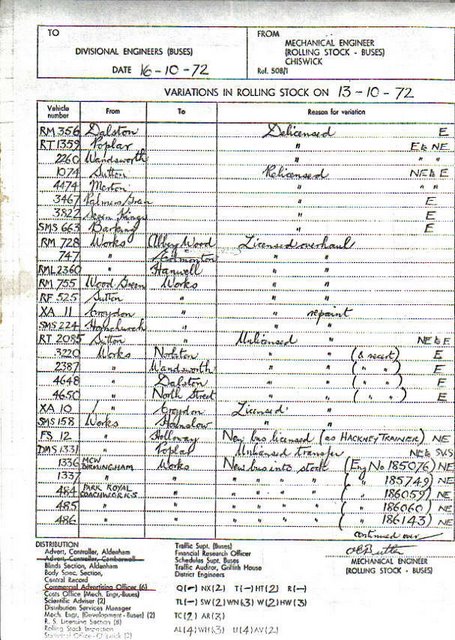 TO
DIVISIONAL ENGINEERS (BUSES)
DATE 16-10-72
FROM
MECHANICAL ENGINEER
(ROLLING STOCK - BUSES)
CHISWICK
Ref. 508/1
VARIATIONS IN ROLLING STOCK ON 13-10-72
Vehicle number From To Reason for variation
RM 356 Dalston Delicensed E
RT 1359 Poplar " E & NE
2260 Wandsworth " " "
1074 Sutton Relicensed NE & E
4474 Merton " " "
3467 Palmers Green " E
3822 Seven Kings " E
SMS 663 Barking " E
RM 728 Works Abbey Wood Licensed overhaul
747 " Edmonton " "
RML 2360 " Hanwell " "
RM 755 Wood Green Works " "
RF 525 Sutton " " "
XA 11 Croydon " " repaint
SMS 224 Hornchurch " " "
RT 2085 Sutton " Unlicensed " NE & E
3220 Works Norbiton " " (& recert) E
2387 " Wandsworth " " ( " " ) E
4648 " Dalston " " ( " " ) E
4650 " North Street " " ( " " ) E
XA 10 " Croydon Licensed "
SMS 158 Works Hounslow " "
FS 12 " Holloway New bus licensed (as HACKNEY TRAINER) NE
DMS 1331 " Poplar Unlicensed transfer NE & SWS
1336 MCW BIRMINGHAM Works New bus into stock (Eng No 185076) NE
1337 " " " " " " ( " 185749) NE
484 PARK ROYAL COACHWORKS " " " " " ( " 186059) NE
485 " " " " " " ( " 186060) NE
486 " " " " " " ( " 186143) NE
continued over
MECHANICAL ENGINEER
(ROLLING STOCK - BUSES)
DISTRIBUTION
Advert. Controller, Aldenham
Advert. Controller, Camberwell
Blinds Section, Aldenham
Body Spec. Section,
Central Record
Commercial Advertising Officer (6)
Costs Office (Mech. Engr-Buses)
Scientific Adviser (2)
Distribution Services Manager
Mech. Engr. (Development - Buses) (2)
R. S. Licensing Section (8)
Rolling Stock Inspection
Traffic Supt. (Buses)
Financial Research Officer
Schedules Supt. Buses
Traffic Auditor, Griffith House
District Engineers
Q(-) NX(2) T(-) HT(2) R(-)
TL(-) SW(2) WN(3) W(2) HW(3)
TC(2) AR(3)
AL(4) WH(3) U(4) AV(2)